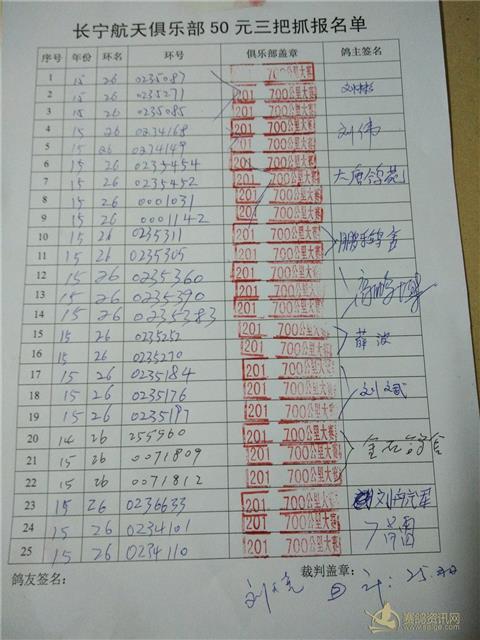 长宁航天俱乐部50元三把抓报名单
序号 年份 环名 环号 俱乐部盖章 鸽主签名
1 15 26 0235087 700公里大赛
2 15 26 0235271 201 700公里大赛 刘彬
3 15 26 0235085 201 700公里大赛
4 15 26 0234168 201 700公里大赛 刘伟
5 15 26 0234149 201 700公里大赛
6 15 26 0235454 201 700公里大赛
7 15 26 0235452 201 700公里大赛 大唐鸽苑
8 15 26 0001031 201 700公里大赛
9 15 26 0001142 201 700公里大赛
10 15 26 0235311 201 700公里大赛
11 15 26 0235305 201 700公里大赛 鹏乐鸽舍
12 15 26 0235360 201 700公里大赛
13 15 26 0235390 201 700公里大赛
14 15 26 0235383 201 700公里大赛
15 15 26 0235252 201 700公里大赛 薛波
16 15 26 0235270 201 700公里大赛
17 15 26 0235184 201 700公里大赛
18 15 26 0235176 201 700公里大赛 刘斌
19 15 26 0235197 201 700公里大赛
20 14 26 255960 201 700公里大赛
21 15 26 0071809 201 700公里大赛
22 15 26 0071812 201 700公里大赛
23 15 26 0236633 201 700公里大赛
24 15 26 0234101 201 700公里大赛
25 15 26 0234110 201 700公里大赛
鸽友签名： 裁判盖章：
计：25
赛鸽资讯网
www.saige.com